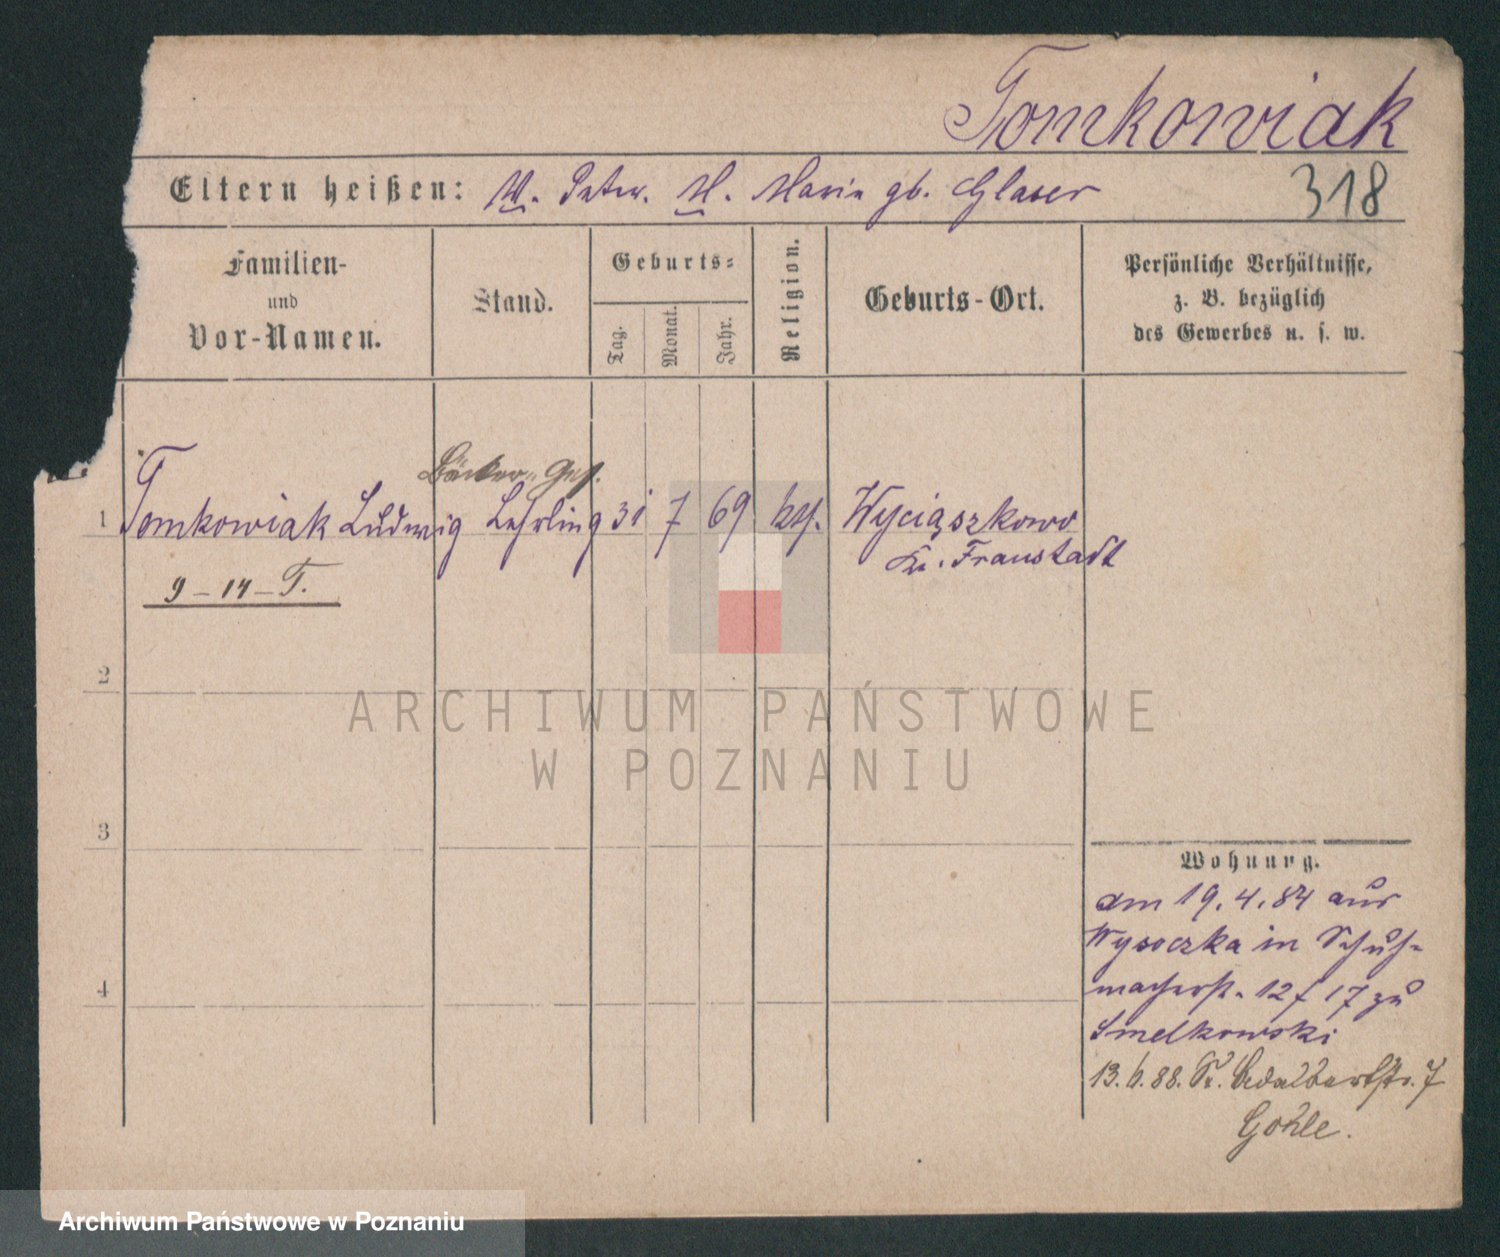 Tomkowiak
Eltern heißen: V. Peter. M. Marie gb. Glaser
318
Familien-
und
Vor-Namen.
Stand.
Geburts-
Tag.
Monat.
Jahr.
Religion.
Geburts-Ort.
Persönliche Verhältnisse,
z. B. bezüglich
des Gewerbes u. s. w.
Bäcker-Ges.
1 Tomkowiak Ludwig Lehrling 31 7 69 kth. Wyciąszkowo
Kr. Fraustadt
9-14-T.
2
3
4
Wohnung.
am 19.4.84 aus
Wysoczka in Schuh-
macherst. 12 / 17 zu
Smelkowski
13.6.88. St. Adalbertstr. 7
Gohle.
ARCHIWUM PAŃSTWOWE
W POZNANIU
Archiwum Państwowe w Poznaniu